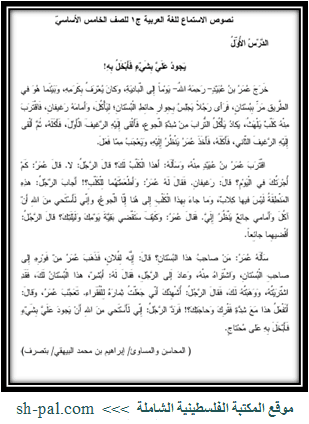 نصوص الاستماع للغة العربية ج١ للصف الخامس الأساسيّ
الدَّرْسُ الأَوَّلُ
يَجودُ عَلَيَّ بِشَيْءٍ فَأَبْخَلُ بِهِ!
خَرَجَ عُمَرُ بنُ عُبَيْدٍ- رَحِمَهُ اللهُ- يَوْماً إِلى البادِيَةِ، وَكانَ يُعْرَفُ بِكَرَمِهِ، وَبَيْنَما هُوَ في
الطَّريقِ مَرَّ بِبُسْتانٍ، فَرَأى رَجُلاً يَجْلِسُ بِجِوارِ حائِطِ البُسْتانِ؛ لِيَأْكُلَ، وَأَمامَهُ رَغيفانِ، فَاقْتَرَبَ
مِنْهُ كَلْبٌ يَلْهَثُ، يَكادُ يَأْكُلُ التُّرابَ مِنْ شِدَّةِ الجوعِ، فَأَلْقى إِلَيْهِ الرَّغيفَ الأَوَّلَ، فَأَكَلَهُ، ثُمَّ أَلْقى
إِلَيْهِ الرَّغيفَ الثّاني، فَأَكَلَهُ، فَأَخَذَ عُمَرُ يَنْظُرُ إِلَيْهِ، وَيَعْجَبُ مِمّا فَعَلَ.
اقْتَرَبَ عُمَرُ بنُ عُبَيْدٍ مِنْهُ، وَسَأَلَهُ: أَهذا الكَلْبُ لَكَ؟ قالَ الرَّجُلُ: لا. قالَ عُمَرُ: كَمْ
أُجْرَتُكَ في اليَوْمِ؟ قالَ: رَغيفانِ. فَقالَ لَهُ عُمَرُ: وَأَطْعَمْتَهُما الكَلْبَ؟! أَجابَ الرَّجُلُ: هذِهِ
المِنْطَقَةُ لَيْسَ فيها كِلابٌ، وَما جاءَ بِهذا الكَلْبِ إِلى هُنا إِلّا الجوعُ، وَإِنّي لَأَسْتَحي مِنَ اللهِ أَنْ
آكُلَ وَأَمامي جائِعٌ يَنْظُرُ إِلَيَّ. فَقالَ عُمَرُ: وَكَيْفَ سَتَقْضي بَقِيَّةَ يَوْمِكَ وَلَيْلَتِكَ؟ قالَ الرَّجُلُ:
أَقْضيهِما جائِعاً.
سَأَلَهُ عُمَرُ: مَنْ صاحِبُ هذا البُسْتانِ؟ قالَ: إِنَّهُ لِفُلانٍ، فَذَهَبَ عُمَرُ مِنْ فَوْرِهِ إِلى
صاحِبِ البُسْتانِ، وَاشْتَراهُ مِنْهُ، وَعادَ إِلى الرَّجُلِ، فَقالَ لَهُ: أَبْشِرْ، هذا البُسْتانُ لَكَ، فَقَدِ
اشْتَرَيْتُهُ، وَوَهَبْتُهُ لَكَ، فَقالَ الرَّجُلُ: أُشْهِدُكَ أَنّي جَعَلْتُ ثِمارَهُ لِلْفُقَراءِ. تَعَجَّبَ عُمَرُ، وَقالَ:
أَتَفْعَلُ هذا مَعَ شِدَّةِ فَقْرِكَ وَحاجَتِكَ؟! فَرَدَّ الرَّجُلُ: إِنّي لَأَسْتَحي مِنَ اللهِ أَنْ يَجودَ عَلَيَّ بِشَيْءٍ
فَأَبْخَلَ بِهِ عَلى مُحْتاجٍ.
( المحاسن والمساوئ/ إبراهيم بن محمد البيهقي/ بتصرف)
موقع المكتبة الفلسطينية الشاملة >>> sh-pal.com